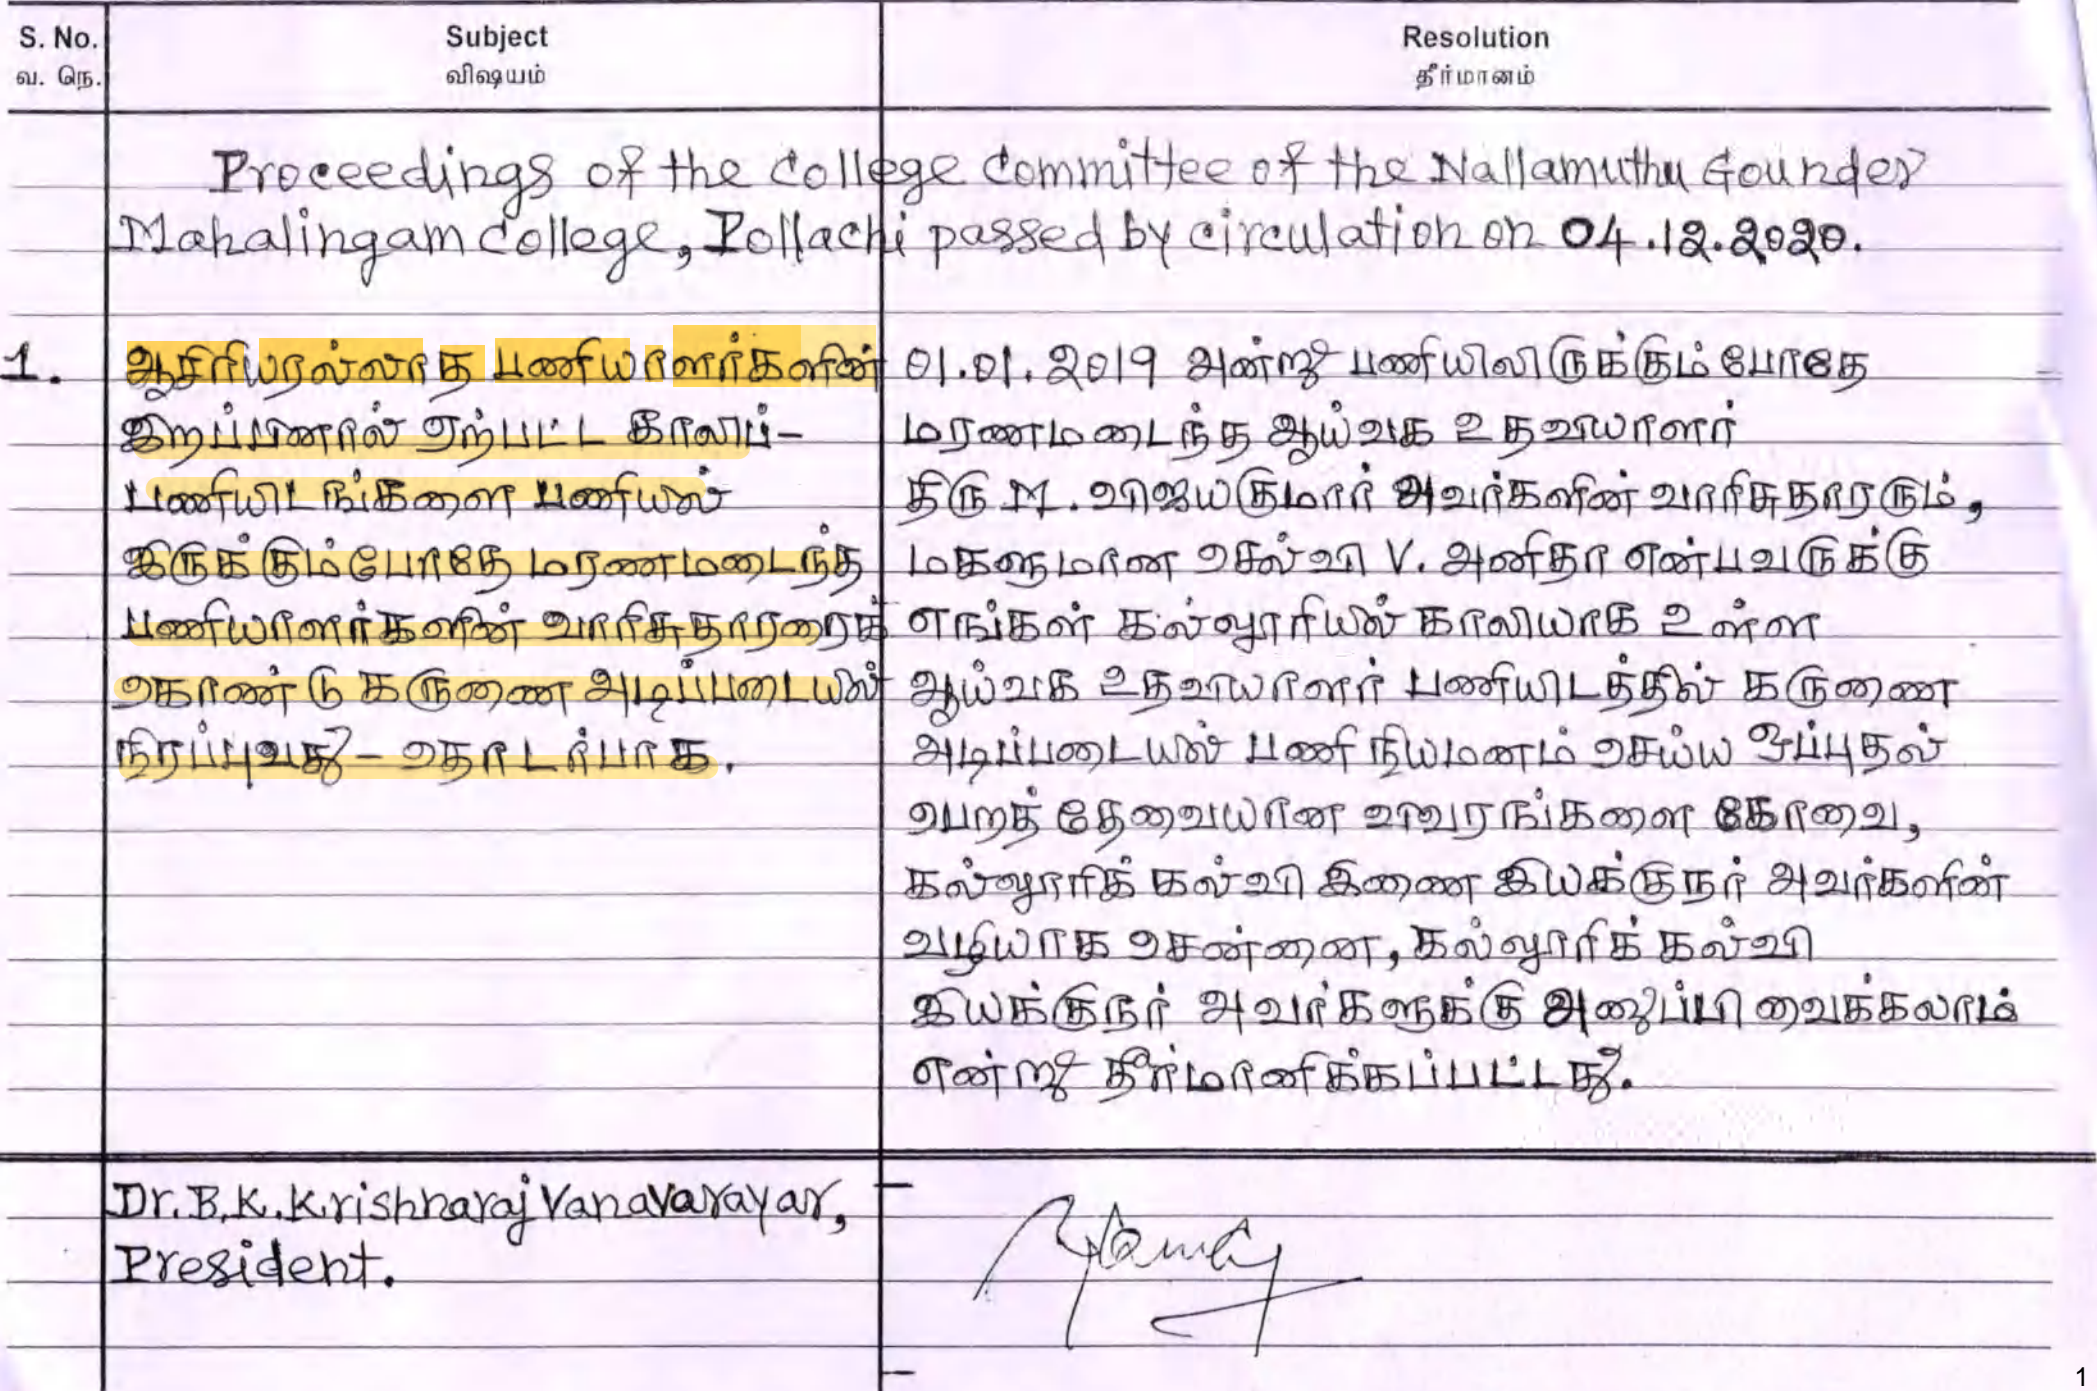 S. No.
வ. நெ.
Subject
விஷயம்
Resolution
தீர்மானம்
Proceedings of the College Committee of the Nallamuthu Gounder
Mahalingam College, Pollachi passed by circulation on 04.12.2020.
1.
ஆசிரியரல்லாத பணியாளர்களின்
இறப்பினால் ஏற்பட்ட காலிப்-
பணியிடங்களை பணியில்
இருக்கும்போதே மரணமடைந்த
பணியாளர்களின் வாரிசுதாரரைக்
கொண்டு கருணை அடிப்படையில்
நிரப்புவது - தொடர்பாக.
01.01.2019 அன்று பணியிலிருக்கும்போதே
மரணமடைந்த ஆய்வக உதவியாளர்
திரு M. விஜயகுமார் அவர்களின் வாரிசுதாரரும்,
மகளுமான செல்வி V. அனிதா என்பவருக்கு
எங்கள் கல்லூரியில் காலியாக உள்ள
ஆய்வக உதவியாளர் பணியிடத்தில் கருணை
அடிப்படையில் பணி நியமனம் செய்ய ஒப்புதல்
பெறத் தேவையான விவரங்களை கோவை,
கல்லூரிக் கல்வி இணை இயக்குநர் அவர்களின்
வழியாக சென்னை, கல்லூரிக் கல்வி
இயக்குநர் அவர்களுக்கு அனுப்பி வைக்கலாம்
என்று தீர்மானிக்கப்பட்டது.
Dr. B.K. Krishnaraj Vanavarayar,
President.
1